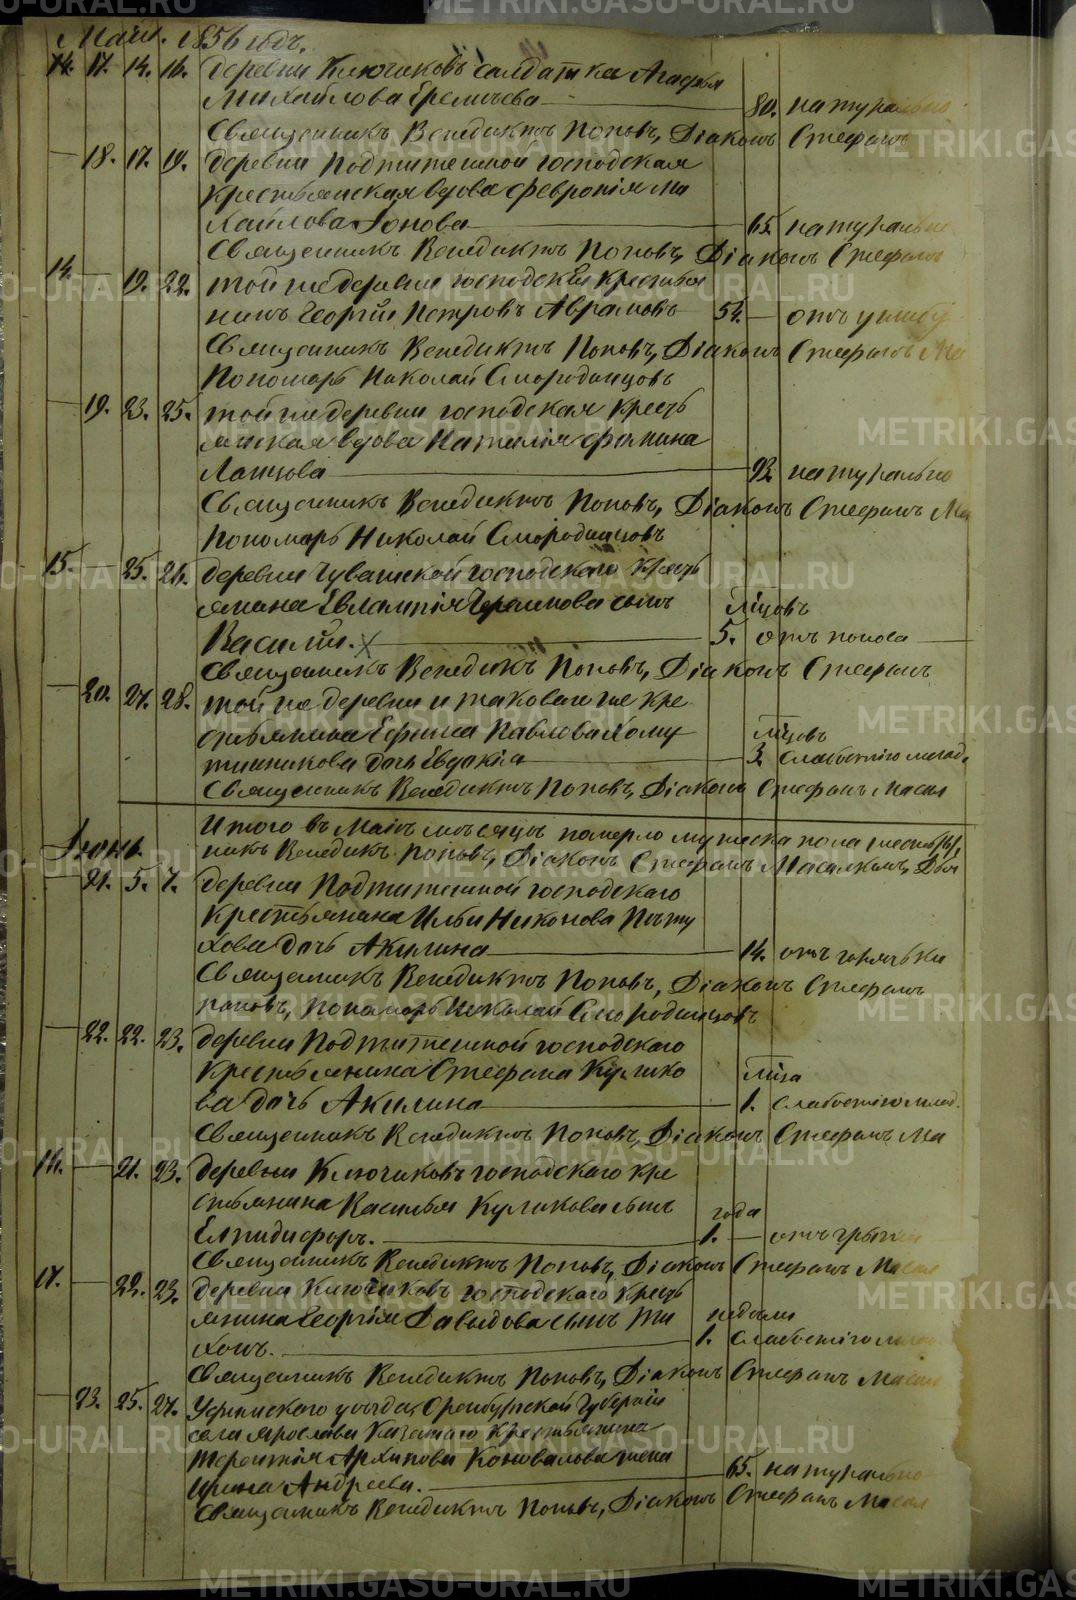 Маій. 1856 годъ.
14. 17. 14. 16. деревни Ключиковъ салдатка Агафья
Михайлова Еремѣева 80. натурально
Священникъ Венедиктъ Поповъ, Діаконъ Стефанъ
18. 17. 19. деревни Подтитешной господская
крестьянская вдова Февронія Ми
хайлова Іонова 65. натурально
Священникъ Венедиктъ Поповъ, Діаконъ Стефанъ
14. 19. 22. той же деревни господскій крестья
нинъ Георгій Петровъ Аврамовъ 54. отъ ушибу
Священникъ Венедиктъ Поповъ, Діаконъ Стефанъ Ма
Пономарь Николай Смородинцовъ
19. 23. 25. той же деревни господская кресть
янская вдова Наталія
93. натурально
Священникъ Венедиктъ Поповъ, Діаконъ Стефанъ Ма
Пономарь Николай Смородинцовъ
15. 25. 26. деревни Чувашской господскаго кресть
янина Евлампія сынъ
Василій. 5. отъ поноса
Священникъ Венедикъ Поповъ, Діаконъ Стефанъ
20. 27. 28. той же деревни и таковаго же кре
стьянина Ефима Павлова Хому
тинникова дочь Евдокія 3. слабостію млад.
Священникъ Венедиктъ Поповъ, Діаконъ Стефанъ Масал
Итого въ Маіѣ мѣсяцѣ померло мужеска пола
Іюнь. никъ Венедикъ Поповъ, Діаконъ Стефанъ
21. 5. 7. деревни Подтитешной господскаго
крестьянина Ильи Никонова Пѣту
хова дочь Акилина 14. отъ горячьки
Священникъ Венедиктъ Поповъ, Діаконъ Стефанъ
Пономарь Николай Смородинцовъ
22. 22. 23. деревни Подтитешной господскаго
крестьянина Стефана Кулико
ва дочь Акилина 1. слабостію млад.
Священникъ Венедиктъ Поповъ, Діаконъ Стефанъ Ма
16. 21. 23. деревни Ключиковъ господскаго кре
стьянина Василья Куликова сынъ года
Елпидифоръ. 1. отъ грыжи
Священникъ Венедиктъ Поповъ, Діаконъ Стефанъ Масал
17. 22. 23. деревни Ключиковъ господскаго кресть
янина Георгія Давыдова сынъ Ти недѣли
хонъ. 1. слабостію млад
Священникъ Венедиктъ Поповъ, Діаконъ Стефанъ Масал
23. 25. 27. Уфимскаго уѣзда, Оренбургской Губерніи
села Ярославки Казеннаго крестьянина
Терентія Архипова Коновалова жена
Ирина Андреева. 65. натурально
Священникъ Венедиктъ Поповъ, Діаконъ Стефанъ Масал
METRIKI.GASO-URAL.RU